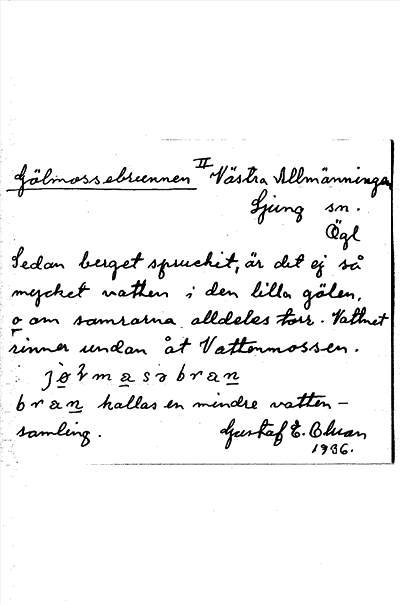 Gölmossebrunnen II Västra Allmänningen
Ljung sn.
Ögl
Sedan berget spruckit, är det ej så
mycket vatten i den lilla gölen,
o om somrarna alldeles torr. Vattnet
rinner undan åt Vattenmossen.
bran kallas en mindre vatten-
samling.
Gustaf E.
1936.